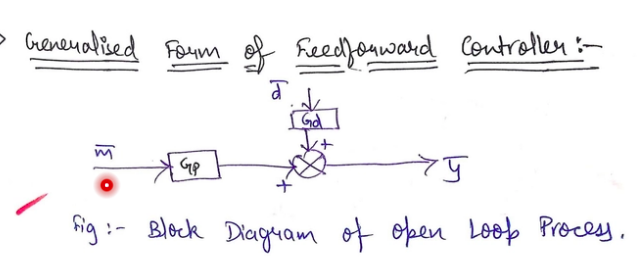 Generalised Form of Feedforward Controller :-
d̅
Gd
+
m̅
Gp
+
y̅
fig :- Block Diagram of open Loop Process.